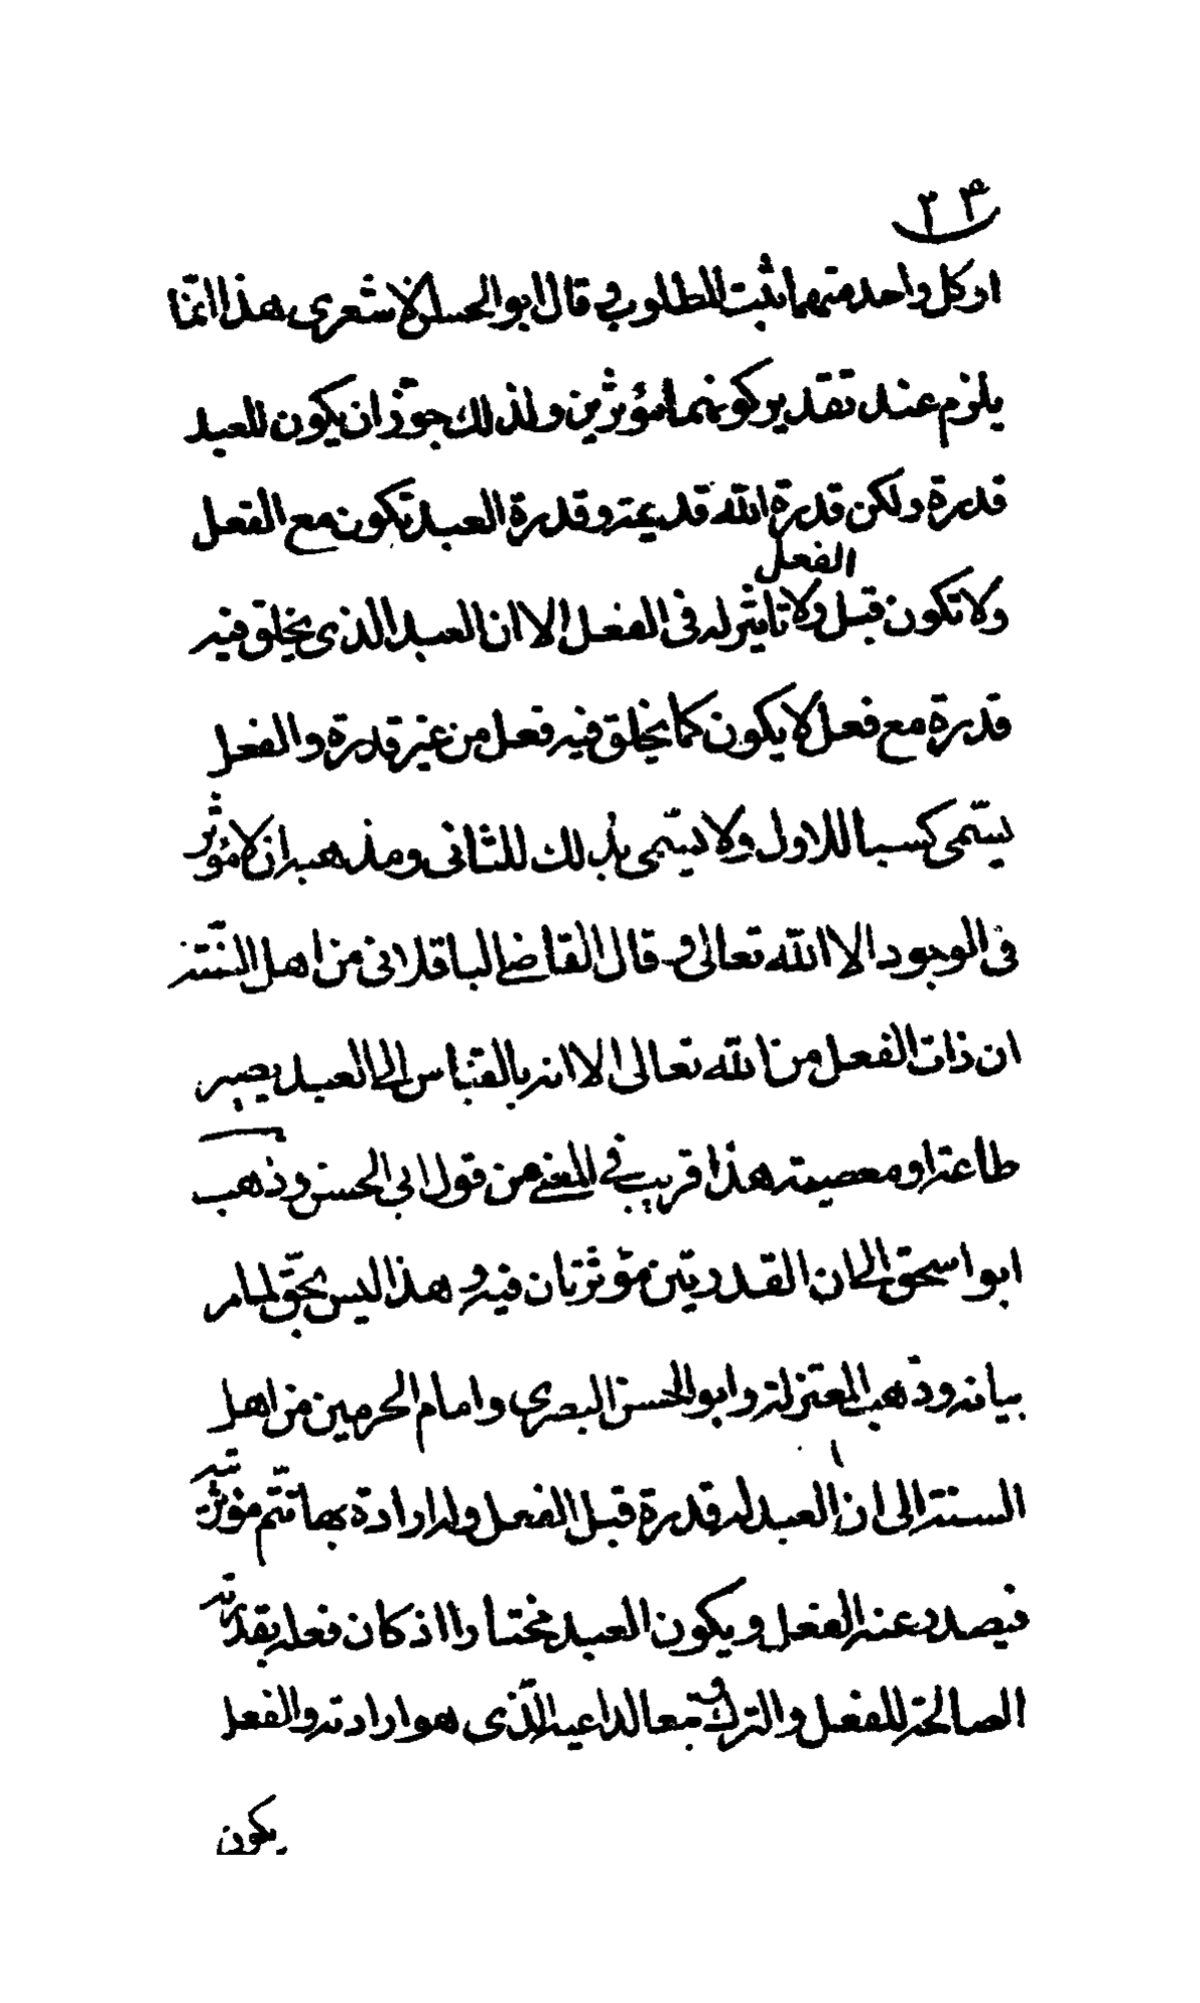 ٢٣
او كل واحد منهما يثبت المطلوب قال ابو الحسن الاشعرى هذا انّما
يلزم عند تقدير كونهما مؤثرين ولذلك جوّز ان يكون للعبد
قدرة ولكن قدرة الله قديمة وقدرة العبد تكون مع الفعل
ولا تكون قبل الفعل ولا تاثير له فى الفعل الا ان العبد الذى يخلق فيه
قدرة مع فعل لا يكون كما يخلق فيه فعل من غير قدرة والفعل
يسّمى كسبا للاول ولا يسّمى بذلك للثانى ومذهبه ان لا مؤثر
فى الوجود الا الله تعالى وقال القاضى الباقلانى من اهل السّنة
ان ذات الفعل من الله تعالى الا انه بالقياس الى العبد يصير
طاعة او معصية هذا قريب فى المعنى من قول ابى الحسن وذهب
ابو اسحق الى ان القدرتين مؤثرتان فيه وهذا ليس بحقّ لما مر
بيانه وذهب المعتزلة وابو الحسن البصرى وامام الحرمين من اهل
السنة الى ان العبد له قدرة قبل الفعل وله ارادة بها تتّم مؤثريّته
فيصدر عنه الفعل ويكون العبد مختارا اذ كان فعله بقدرته
الصالحة للفعل والترك وتبعا لداعيه الّذى هو ارادته والفعل
يكون